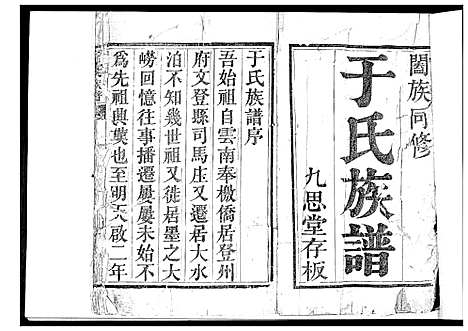 闔族同修
于氏族譜
九思堂存板
于氏族譜序
吾始祖自雲南奉檄僑居登州
府文登縣司馬庄又遷居大水
泊不知幾世祖又徙居墨之大
嶗回憶往事播遷屢屢未始不
爲先祖興嘆也至明天啟二年